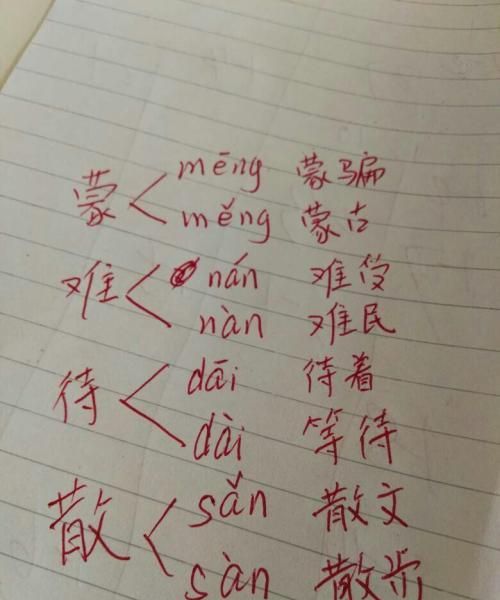 蒙
mēng 蒙骗
měng 蒙古
难
nán 难受
nàn 难民
待
dāi 待着
dài 等待
散
sǎn 散文
sàn 散步